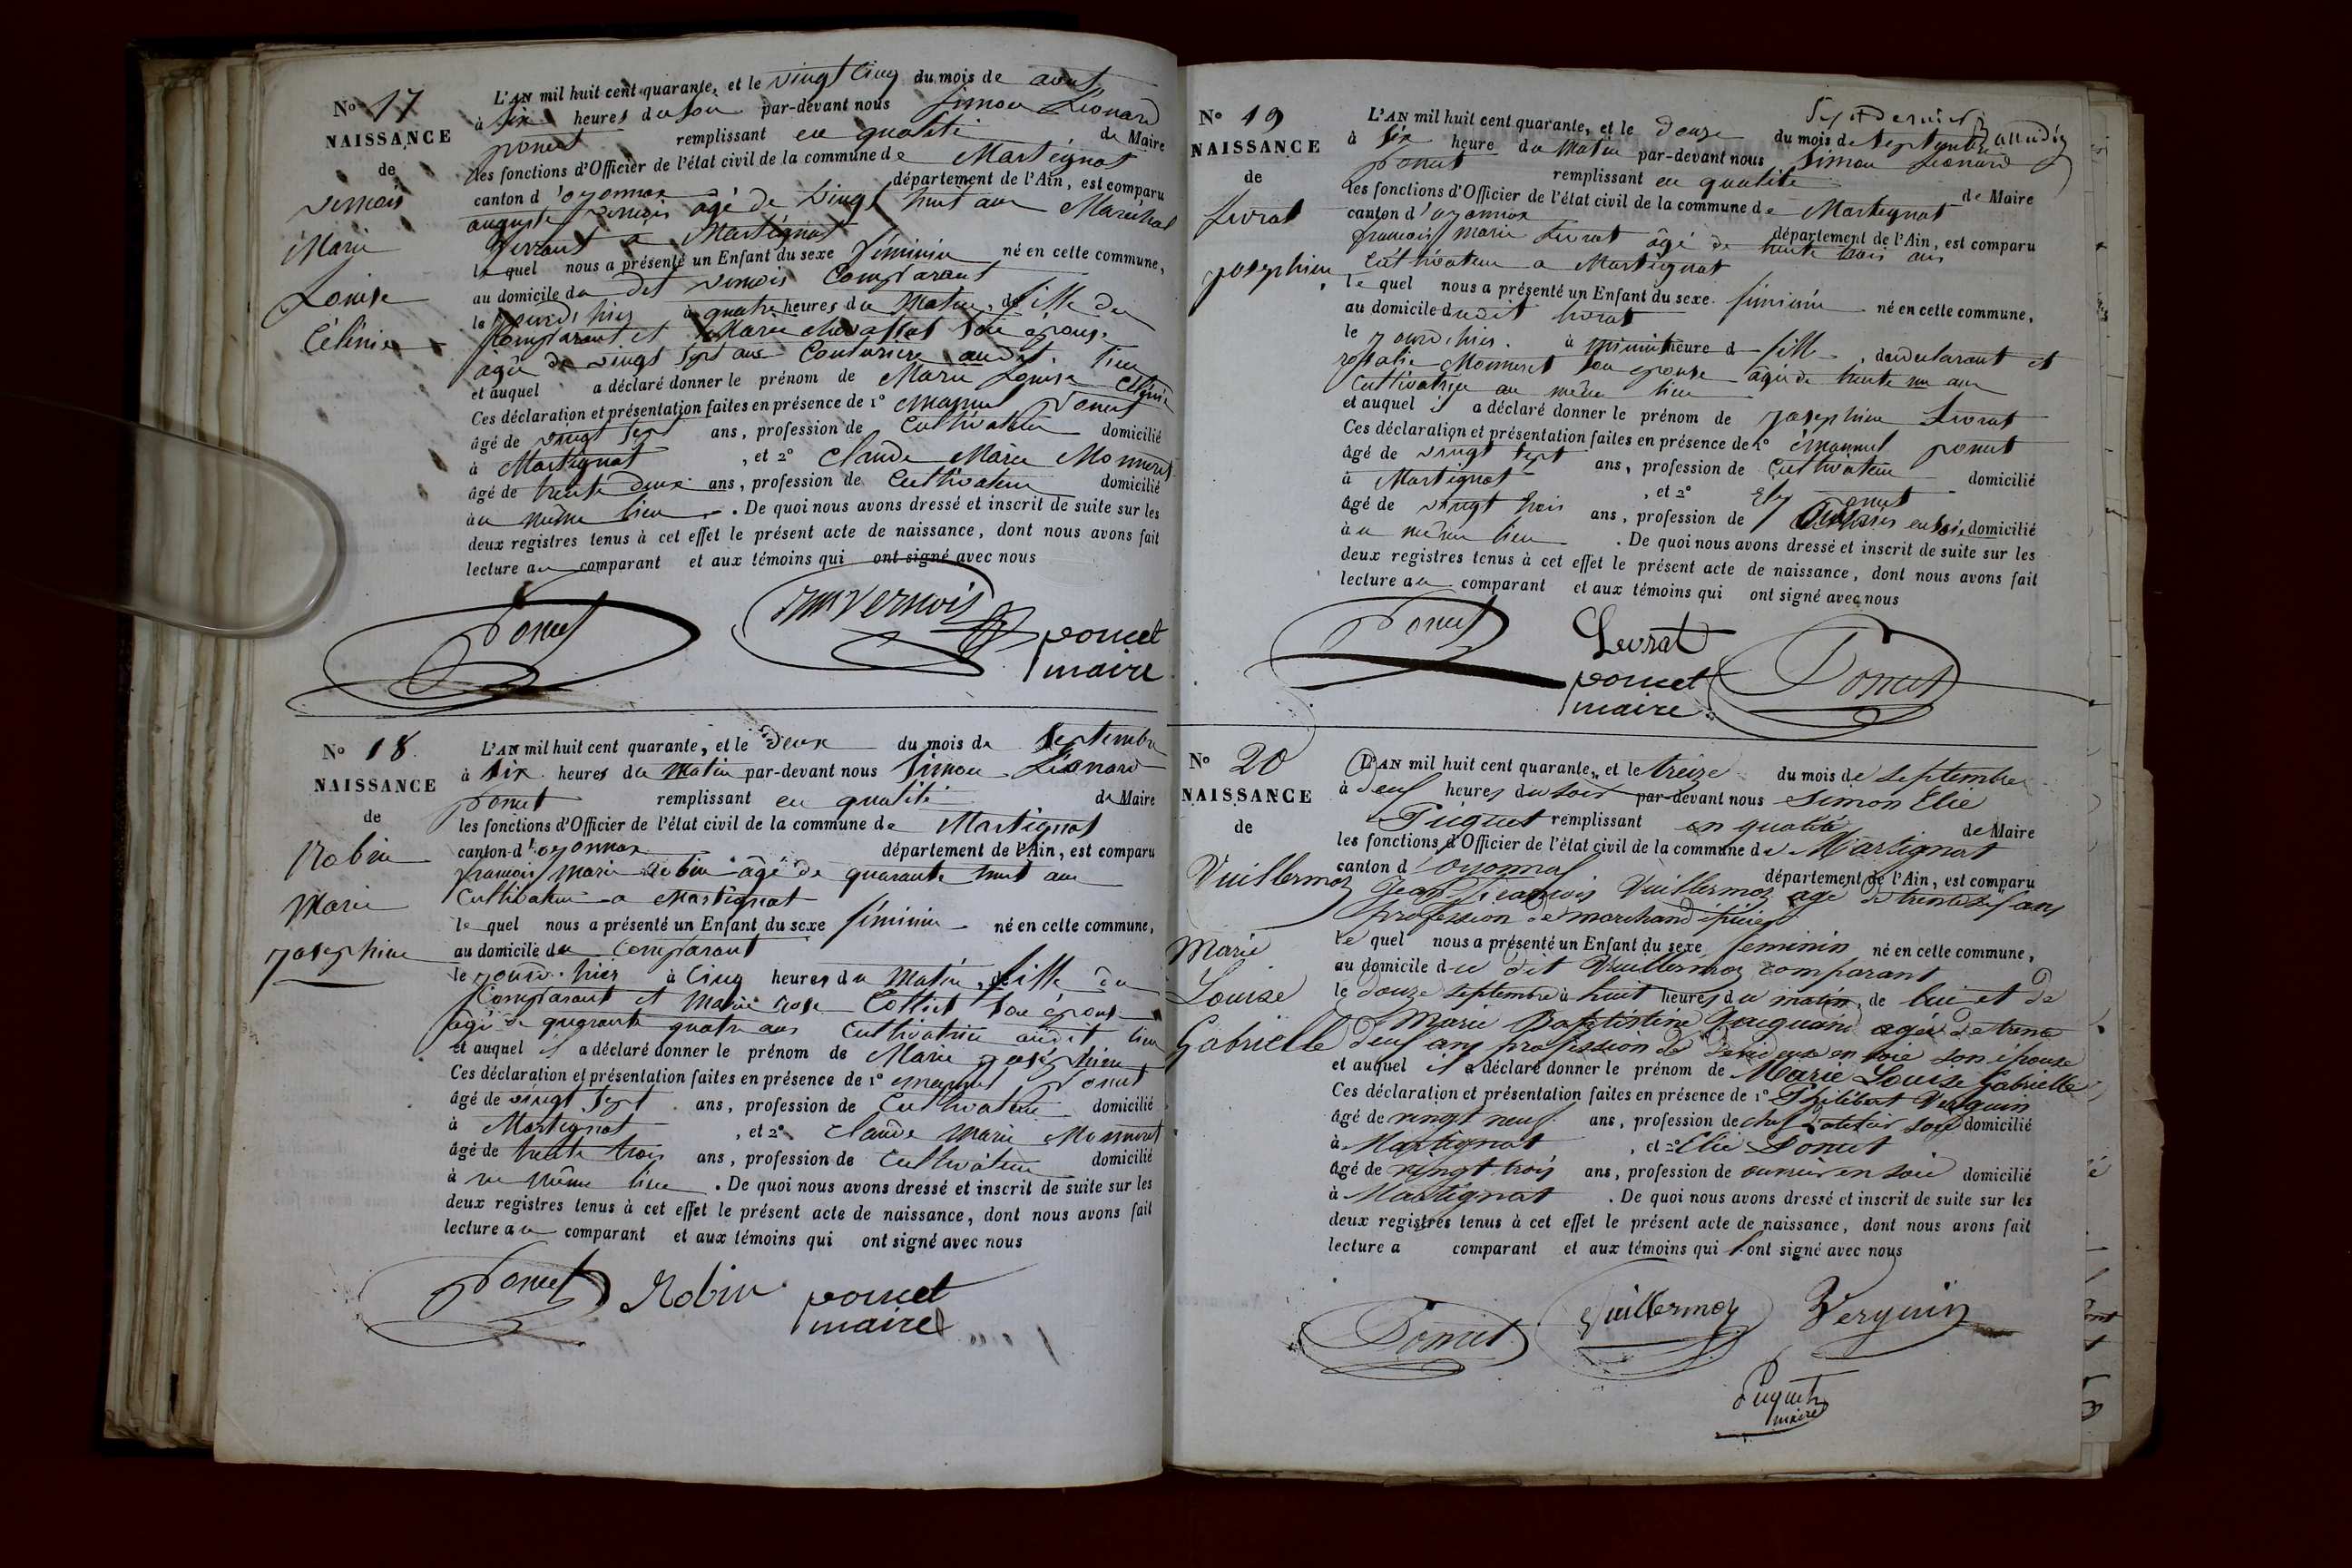 N° 17
NAISSANCE
de
vernois
Marie
Louise
Célinie
L'AN mil huit cent quarante, et le vingt cinq du mois de aout
à six heures du soir par-devant nous Simon Léonard
poncet remplissant en qualité de Maire
les fonctions d'Officier de l'état civil de la commune de Martignat
canton d'oyonnax département de l'Ain, est comparu
auguste vernois âgé de vingt huit ans Maréchal
ferrant a Martignat
le quel nous a présenté un Enfant du sexe féminin né en cette commune,
au domicile du dit vernois Comparant
le jourd'hier à quatre heures du Matin, de fille du
Comparant et Marie son épouse
âgée de vingt sept ans Couturière audit lieu
et auquel a déclaré donner le prénom de Marie Louise Célinie
Ces déclaration et présentation faites en présence de 1° emanuel Poncet
âgé de vingt sept ans, profession de Cultivateur domicilié
à Martignat, et 2° Claude Marie Monneret
âgé de trente deux ans, profession de Cultivateur domicilié
au même lieu. De quoi nous avons dressé et inscrit de suite sur les
deux registres tenus à cet effet le présent acte de naissance, dont nous avons fait
lecture au comparant et aux témoins qui ont signé avec nous
Poncet vernois poncet
maire
N° 18.
NAISSANCE
de
Robin
Marie
Josephine
L'AN mil huit cent quarante, et le deux du mois de Septembre
à six heures du Matin par-devant nous Simon Léonard
poncet remplissant en qualité de Maire
les fonctions d'Officier de l'état civil de la commune de Martignat
canton d'oyonnax département de l'Ain, est comparu
francois Marie Robin âgé de quarante huit ans
Cultivateur a Martignat
le quel nous a présenté un Enfant du sexe féminin né en cette commune,
au domicile du Comparant
le jourd'hier à Cinq heures du Matin, de fille du
Comparant et Marie rose Collet son épouse
âgée de quarante quatre ans Cultivatrice audit lieu
et auquel il a déclaré donner le prénom de Marie Joséphine
Ces déclaration et présentation faites en présence de 1° emanuel Poncet
âgé de vingt sept ans, profession de Cultivateur domicilié
à Martignat, et 2° Claude Marie Monneret
âgé de trente trois ans, profession de Cultivateur domicilié
à au même lieu. De quoi nous avons dressé et inscrit de suite sur les
deux registres tenus à cet effet le présent acte de naissance, dont nous avons fait
lecture au comparant et aux témoins qui ont signé avec nous
Poncet Robin poncet
maire
N° 19
NAISSANCE
de
Livrat
Josephine
L'AN mil huit cent quarante, et le douze du mois de Septembre
à six heure du Matin par-devant nous Simon Léonard
poncet remplissant en qualité de Maire
les fonctions d'Officier de l'état civil de la commune de Martignat
canton d'oyonnax département de l'Ain, est comparu
francois Marie Livrat âgé de trente trois ans
Cultivateur a Martignat
le quel nous a présenté un Enfant du sexe féminin né en cette commune,
au domicile dudit livrat
le jourd'hier à minuit heure d fille, du declarant et
rosalie Monneret son épouse âgée de trente un ans
Cultivatrice au même lieu
et auquel il a déclaré donner le prénom de Josephine Livrat
Ces déclaration et présentation faites en présence de 1° émanuel poncet
âgé de vingt sept ans, profession de Cultivateur domicilié
à Martignat, et 2° Ely Poncet
âgé de vingt trois ans, profession de en soie domicilié
à u même lieu. De quoi nous avons dressé et inscrit de suite sur les
deux registres tenus à cet effet le présent acte de naissance, dont nous avons fait
lecture au comparant et aux témoins qui ont signé avec nous
Poncet Levrat
poncet Poncet
maire
N° 20
NAISSANCE
de
Vuillermoz
Marie
Louise
Gabrielle
L'AN mil huit cent quarante, et le treize du mois de Septembre
à deux heures du soir par-devant nous Simon Elie
Piquet remplissant en qualité de Maire
les fonctions d'Officier de l'état civil de la commune de Martignat
canton d'oyonnax département de l'Ain, est comparu
Jean francois Vuillermoz age de trente six ans
profession de marchand épicier
le quel nous a présenté un Enfant du sexe feminin né en cette commune,
au domicile du dit Vuillermoz comparant
le douze septembre à huit heures du matin, de lui et de
Marie Baptistine agée de trente
deux ans profession de devideuse en soie son épouse
et auquel il a déclaré donner le prénom de Marie Louise Gabrielle
Ces déclaration et présentation faites en présence de 1° Philibert Verguin
âgé de vingt neuf ans, profession de chef soie domicilié
à Martignat, et 2° Elie Poncet
âgé de vingt trois ans, profession de ouvrier en soie domicilié
à Martignat. De quoi nous avons dressé et inscrit de suite sur les
deux registres tenus à cet effet le présent acte de naissance, dont nous avons fait
lecture a comparant et aux témoins qui ont signé avec nous
Poncet Vuillermoz Verguin
Piquet
maire